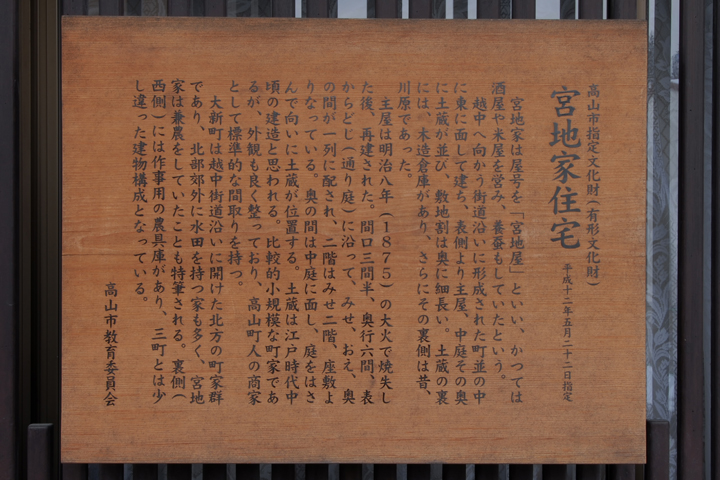 高山市指定文化財(有形文化財)
宮地家住宅
平成十二年五月二十二日指定
宮地家は屋号を「宮地屋」といい、かつては
酒屋や米屋を営み、養蚕もしていたという。
越中へ向かう街道沿いに形成された町並の中
に東に面して建ち、表側より主屋、中庭その奥
に土蔵が並び、敷地割は奥に細長い。土蔵の裏
には、木造倉庫があり、さらにその裏側は昔、
川原であった。
主屋は明治八年(1875)の大火で焼失し
た後、再建された。間口三間半、奥行六間、表
からどじ(通り庭)に沿って、みせ、おえ、奥
の間が一列に配され、二階はみせ二階、座敷よ
りなっている。奥の間は中庭に面し、庭をはさ
んで向いに土蔵が位置する。土蔵は江戸時代中
頃の建造と思われる。比較的小規模な町家であ
るが、外観も良く整っており、高山町人の商家
として標準的な間取りを持つ。
大新町は越中街道沿いに開けた北方の町家群
であり、北部郊外に水田を持つ家も多く、宮地
家は兼農をしていたことも特筆される。裏側(
西側)には作事用の農具庫があり、三町とは少
し違った建物構成となっている。
高山市教育委員会